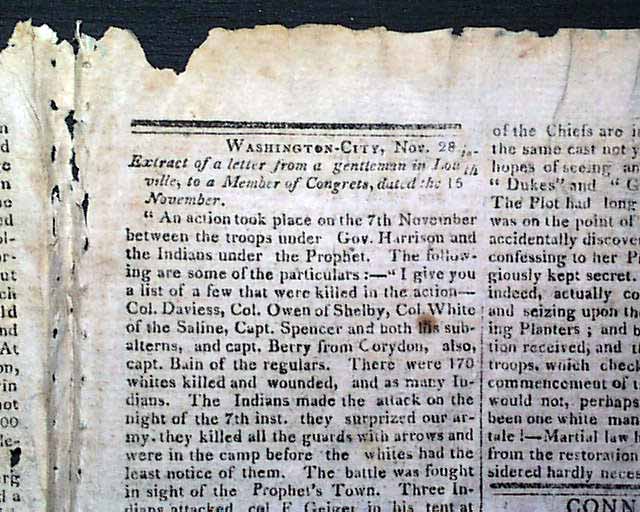 WASHINGTON-CITY, Nov. 28
Extract of a letter from a gentleman in Lou
ville, to a Member of Congrets, dated the 15
November.
" An action took place on the 7th November
between the troops under Gov. Harrison and
the Indians under the Prophet. The follow-
ing are some of the particulars :—" I give you
a list of a few that were killed in the action—
Col. Daviess, Col. Owen of Shelby, Col. White
of the Saline, Capt. Spencer and both his sub-
alterns, and capt. Berry from Corydon, also,
capt. Bain of the regulars. There were 170
whites killed and wounded, and as many In-
dians. The Indians made the attack on the
night of the 7th inst. they surprized our ar-
my. they killed all the guards with arrows and
were in the camp before the whites had the
least notice of them. The battle was fought
in sight of the Prophet's Town. Three In-
dians attacked col F. Geiger in his tent at
of the Chiefs are i
the same cast not y
hopes of seeing an
" Dukes" and "
The Plot had long
was on the point of
accidentally discove
confessing to her P
giously kept secret.
indeed, actually co
and seizing upon th
ing Planters ; and
tion received; and t
troops, which check
commencement of t
would not, perhaps
been one white man
tale !—Martial law h
from the restoration
sidered hardly neces
CONN